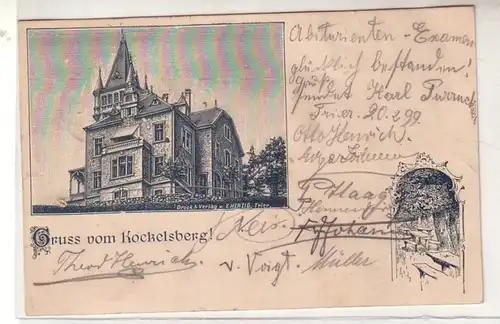 Abiturienten-Examen
glücklich bestanden!
Gruß
sendet Karl
Trier 20.2.99
Otto Henrich.
Druck & Verlag v. E. HERZIG, Trier
P. Haas
Gruss vom Kockelsberg!
Theod Henrich.
v. Voigt. Müller